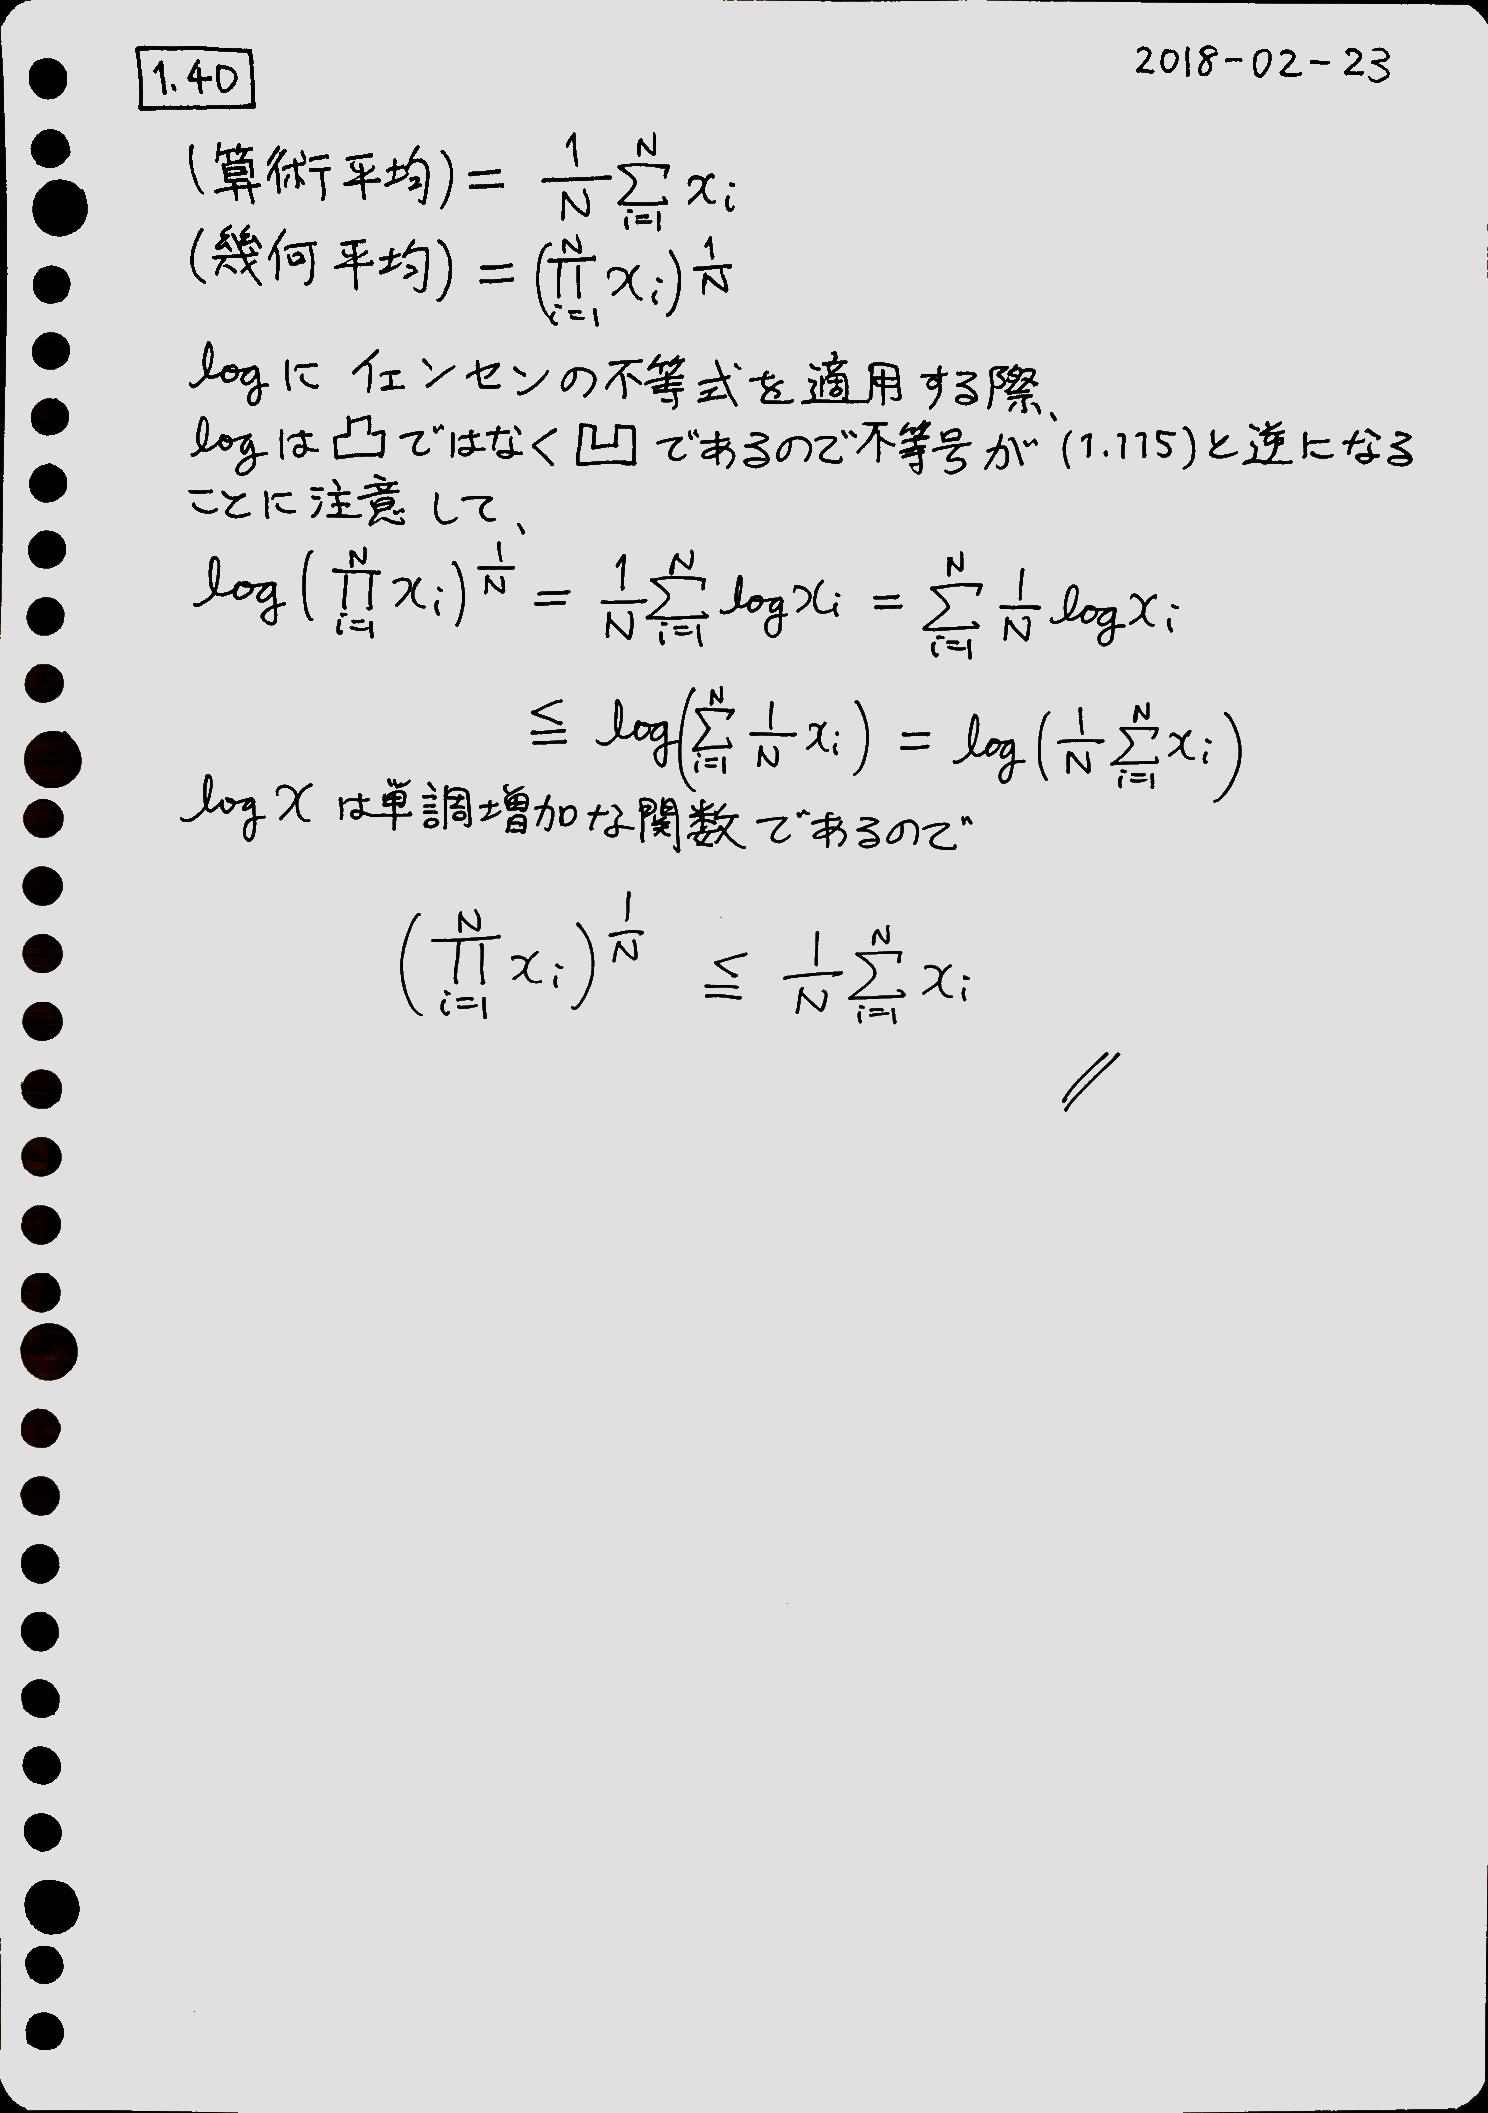 1.40 2018-02-23
(算術平均) = \frac{1}{N} \sum_{i=1}^{N} x_i
(幾何平均) = (\prod_{i=1}^{N} x_i)^{\frac{1}{N}}
logに イェンセンの不等式を適用する際、
logは凸ではなく凹であるので不等号が (1.115)と逆になる
ことに注意して、
log(\prod_{i=1}^{N} x_i)^{\frac{1}{N}} = \frac{1}{N} \sum_{i=1}^{N} log x_i = \sum_{i=1}^{N} \frac{1}{N} log x_i
≦ log(\sum_{i=1}^{N} \frac{1}{N} x_i) = log(\frac{1}{N} \sum_{i=1}^{N} x_i)
log x は単調増加な関数であるので
(\prod_{i=1}^{N} x_i)^{\frac{1}{N}} ≦ \frac{1}{N} \sum_{i=1}^{N} x_i
//